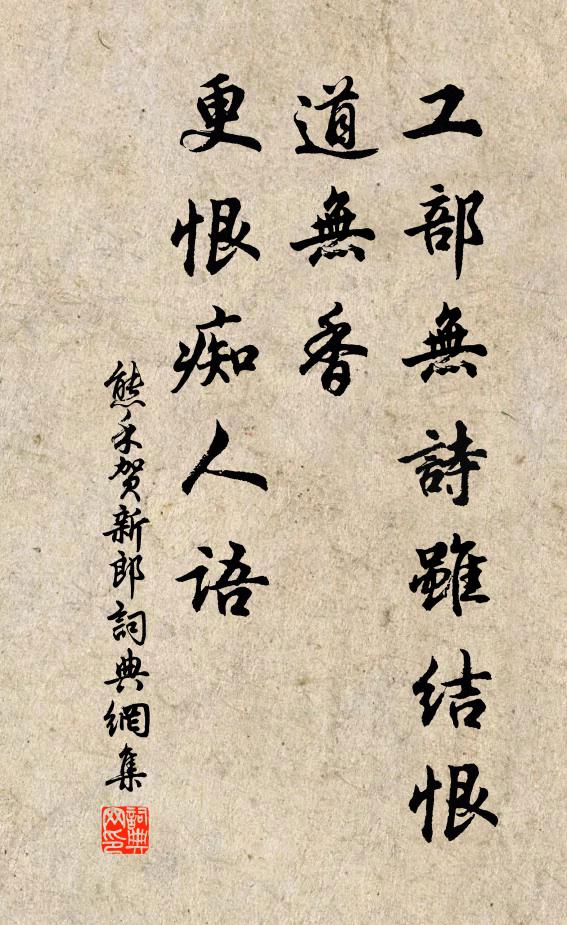 工部無詩雖結恨
道無香
更恨痴人語
熊禾賀新郎詞典網集
詞典网印